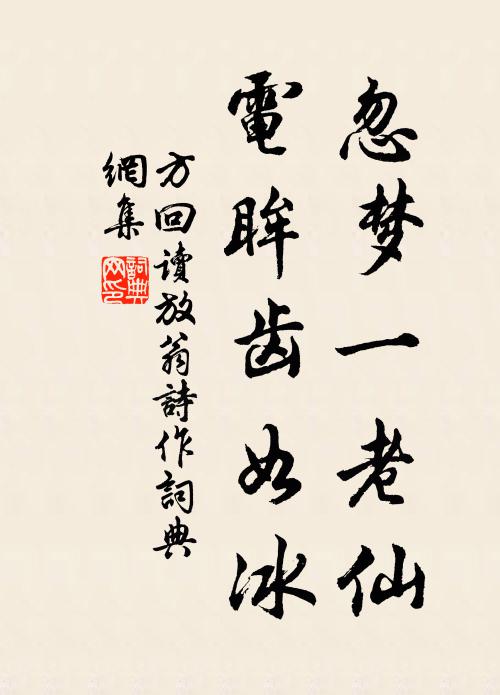 忽梦一老仙
電眸齿如冰
方回讀放翁詩作詞典
網集
詞典網印